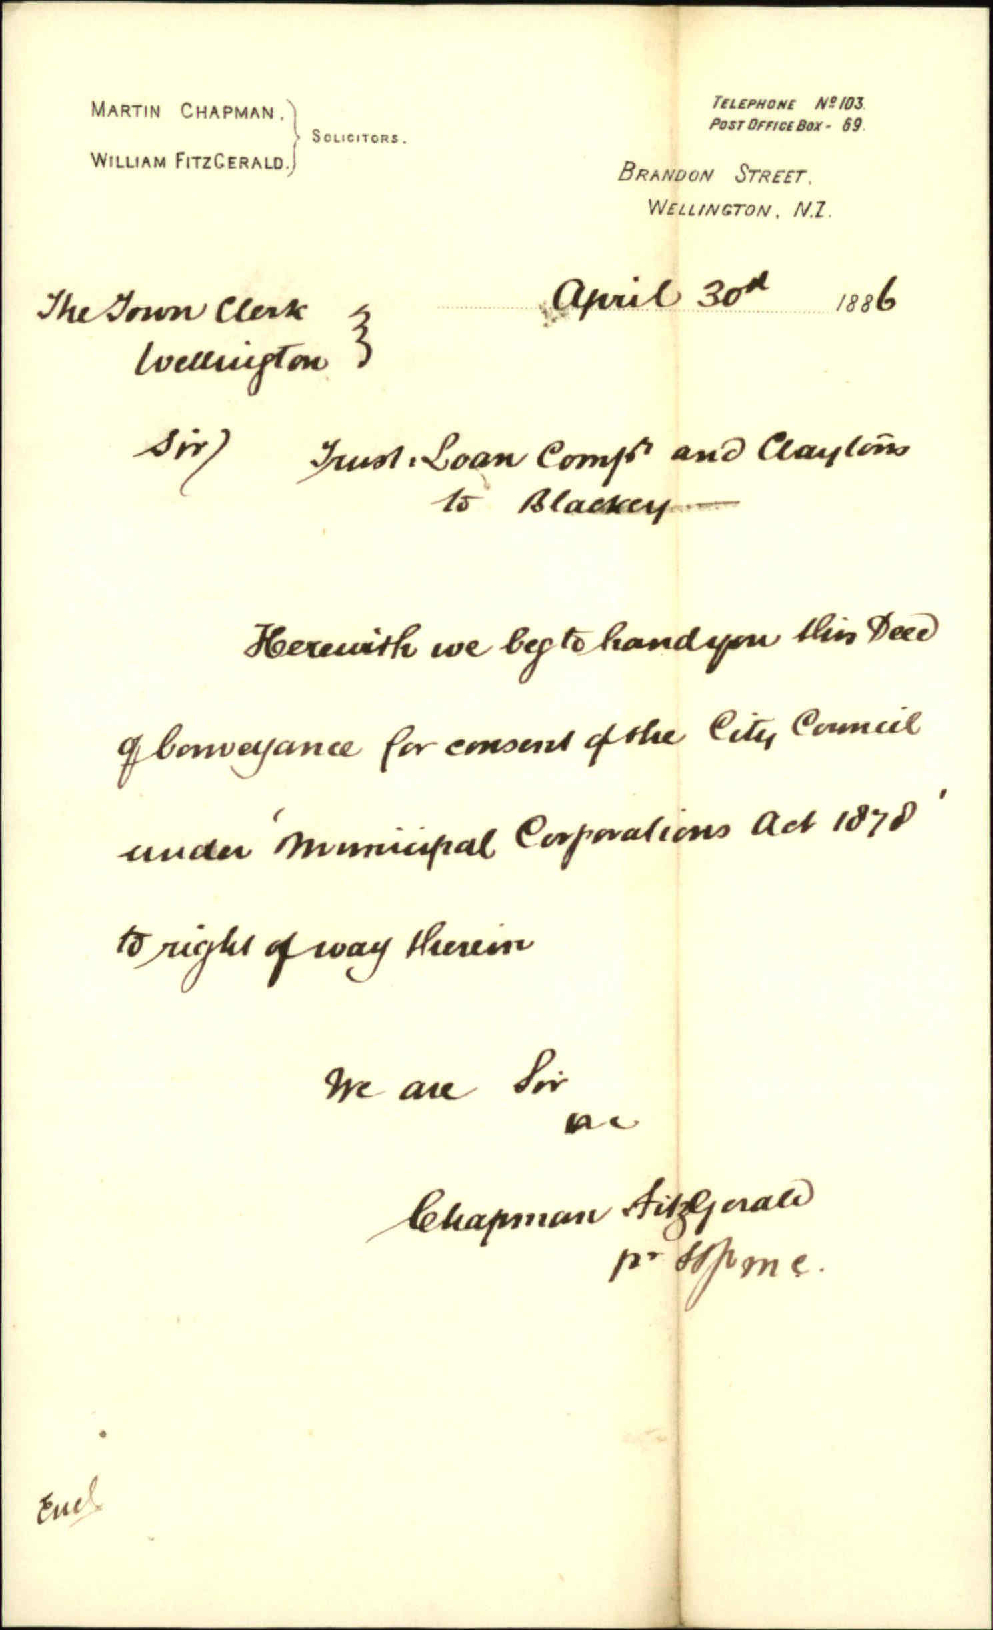 MARTIN CHAPMAN.
WILLIAM FITZGERALD.
SOLICITORS.
TELEPHONE Nº 103.
POST OFFICE BOX - 69.
BRANDON STREET.
WELLINGTON, N.Z.
April 30th 1886
The Town Clerk
Wellington
Sir)
Trust & Loan Compy and Claytons
to Blackey
Herewith we beg to hand you this Deed
of Conveyance for consent of the City Council
under 'Municipal Corporations Act 1878'
to right of way therein
We are Sir
&c
Chapman FitzGerald
pr
Encl